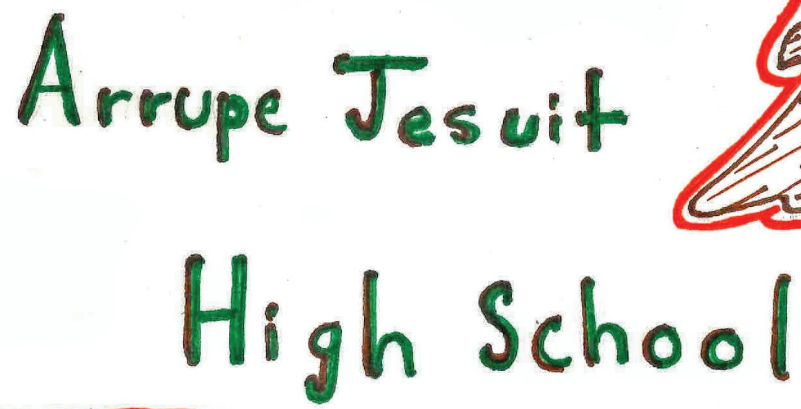 Arrupe Jesuit
High School